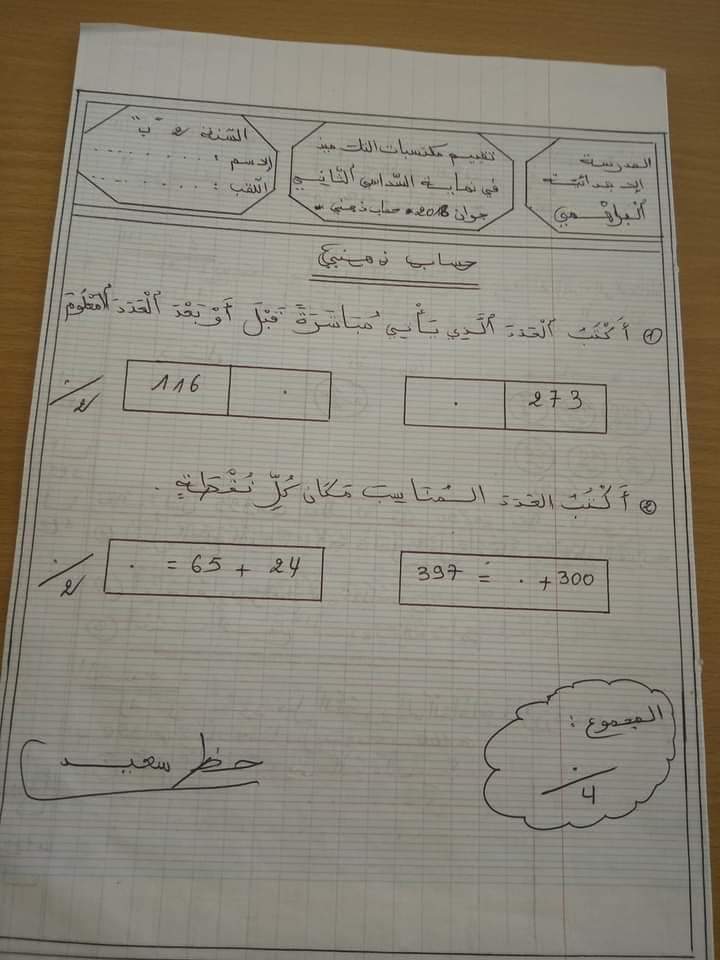 المدرسة
الابتدائية
البراهمي
تقييم مكتسبات التلاميذ
في نهاية السّداسي الثّاني
جوان 2018 حساب ذهني
السّنة 2 "ب"
الاسم : ........
اللّقب : ........
حساب ذهني
1) أَكْتُبُ الْعَدَدَ الَّذِي يَأْتِي مُبَاشَرَةً قَبْلَ أَوْ بَعْدَ الْعَدَدِ الْمَعْلُومِ
273 .
. 116
./2
2) أَكْتُبُ العَدَدَ الـمُنَاسِبَ مَكَانَ كُلِّ نُقْطَةٍ .
300 + . = 397
24 + 65 = .
./2
المجموع :
./4
حظ سعيد